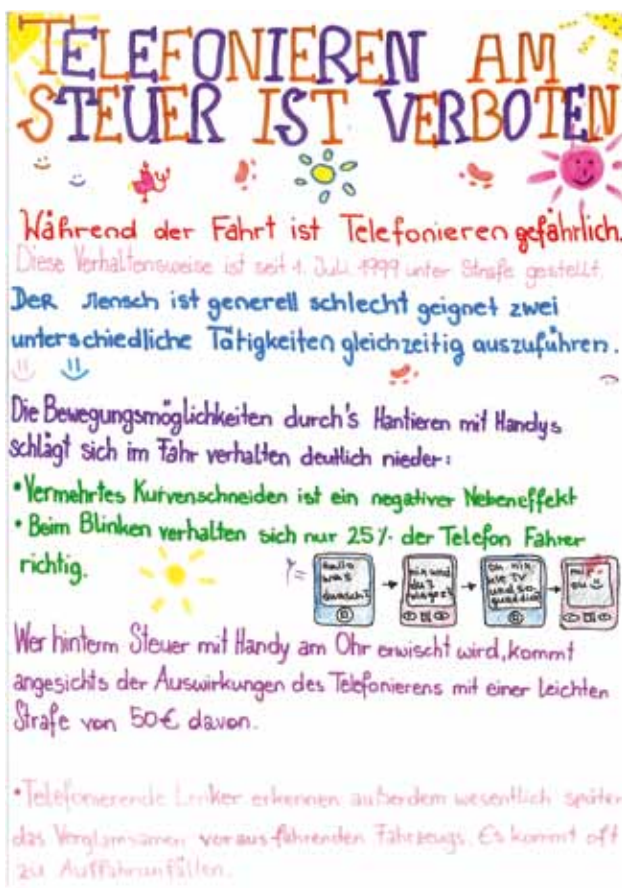 TELEFONIEREN AM
STEUER IST VERBOTEN
Während der Fahrt ist Telefonieren gefährlich.
Diese Verhaltensweise ist seit 1. Juli 1999 unter Strafe gestellt.
Der Mensch ist generell schlecht geignet zwei
unterschiedliche Tätigkeiten gleichzeitig auszuführen.
Die Bewegungsmöglichkeiten durch's Hantieren mit Handys
schlägt sich im Fahr verhalten deutlich nieder:
• Vermehrtes Kurvenschneiden ist ein negativer Nebeneffekt
• Beim Blinken verhalten sich nur 25% der Telefon Fahrer
richtig.
Hallo
was
Oh nix
TV
und so
Wer hinterm Steuer mit Handy am Ohr erwischt wird, kommt
angesichts der Auswirkungen des Telefonierens mit einer leichten
Strafe von 50€ davon.
• Telefonierende Lenker erkennen außerdem wesentlich später
das Verglamsamen vorausfahrenden Fahrzeugs. Es kommt oft
zu Auffahrunfällen.